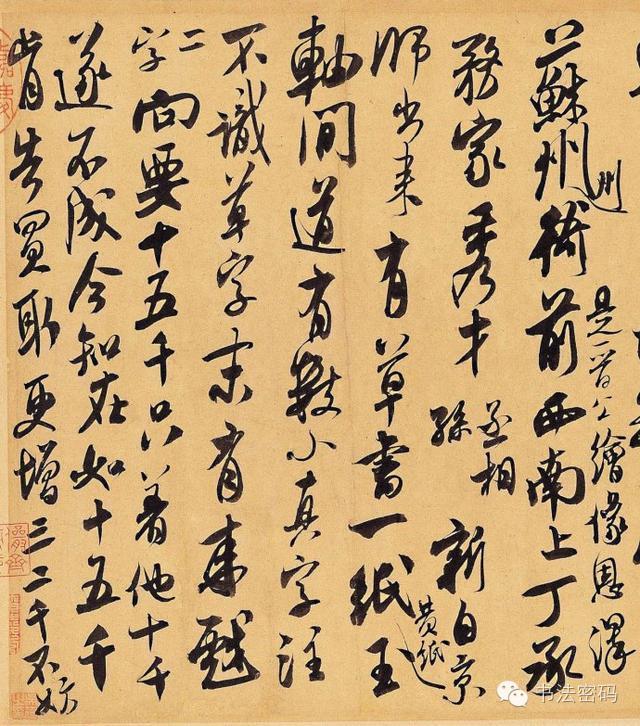 蘇州衙前西南上丁承
州
是晉公繪像恩澤
務家秀才 丞相孫 新自京
師出來有草書一紙玉
黃紙
軸間道有數小真字注
不識草字末有來戩
二字向要十五千只著他十千
遂不成今知在如十五千
肯告買取更增三二千不妨
书法密码